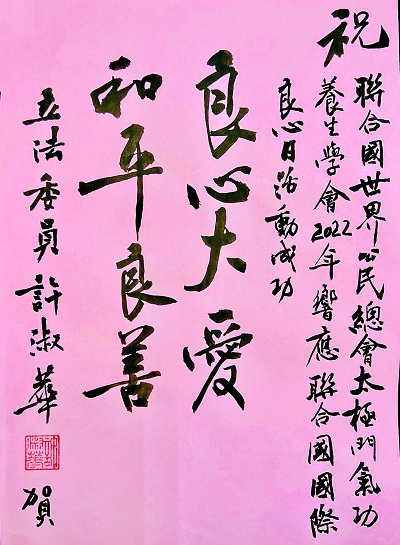 祝
聯合國世界公民總會太極門氣功
養生學會2022年響應聯合國國際
良心日活動成功
良心大愛
和平良善
立法委員許淑華
賀